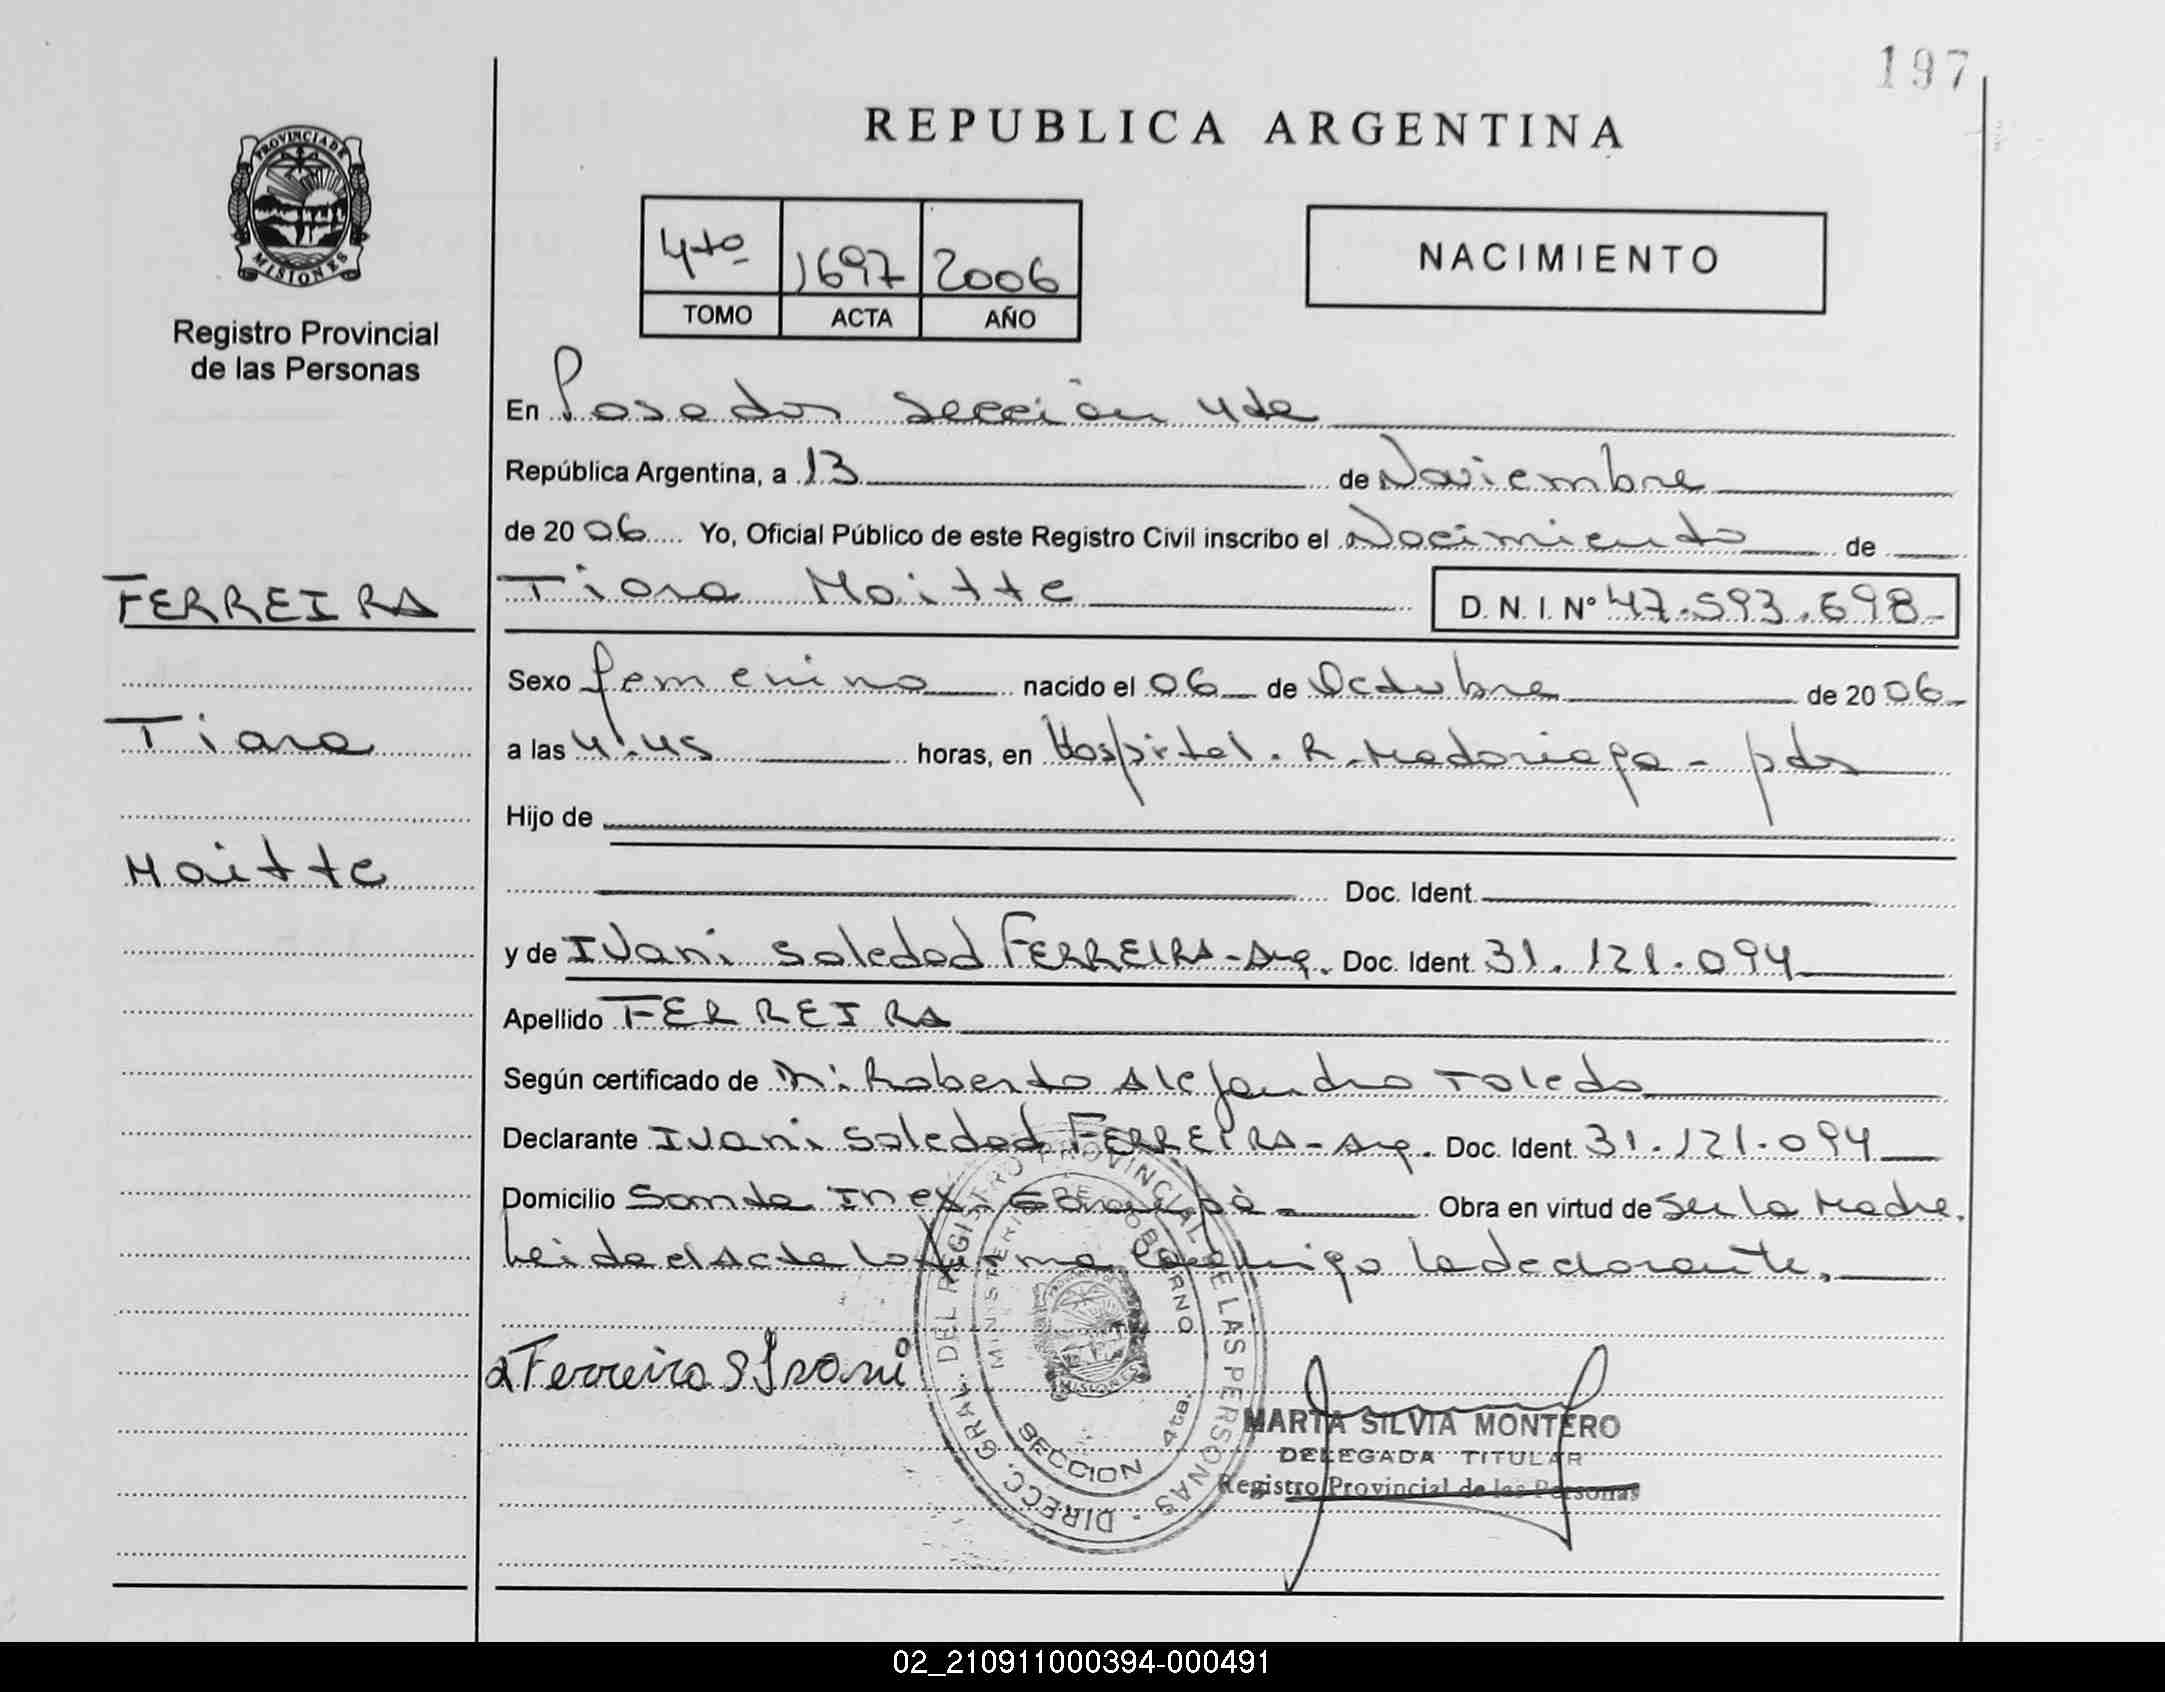 197
REPUBLICA ARGENTINA
PROVINCIA DE
MISIONES
Registro Provincial
de las Personas
4to 1697 2006
TOMO ACTA AÑO
NACIMIENTO
En Posadas Sección 4ta
República Argentina, a 13 de Noviembre
de 2006 Yo, Oficial Público de este Registro Civil inscribo el Nacimiento de
FERREIRA
Tiara Maitte D. N. I. Nº 47.593.698-
Sexo femenino nacido el 06 de Octubre de 2006-
Tiara
a las 4:45 horas, en Hospital. R. Madariaga - pdas
Hijo de
Maitte
Doc. Ident.
y de Ivani Soledad FERREIRA-Arg. Doc. Ident. 31.121.094
Apellido FERREIRA
Según certificado de Roberto Alejandro Toledo
Declarante Ivani Soledad FERREIRA-Arg. Doc. Ident. 31.121.094
Domicilio Santa Inez Garupá- Obra en virtud de Ser la Madre.
Leida el Acta la firma conmigo la declarante.
Ferreira S Ivani
DIRECC. GRAL. DEL REGISTRO PROVINCIAL DE LAS PERSONAS
MINISTERIO DE GOBIERNO
MISIONES
SECCION 4ta.
MARTA SILVIA MONTERO
DELEGADA TITULAR
Registro Provincial de las Personas
02_210911000394-000491